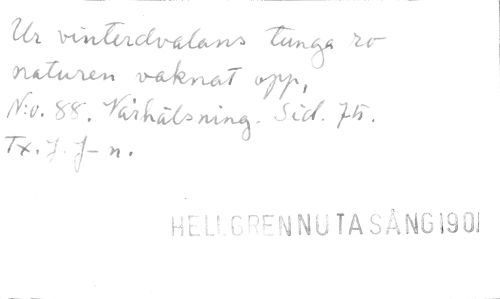 Ur vinterdvalans tunga ro
naturen vaknat opp,
N:o. 88. Vårhälsning. Sid. 75.
Tx. J. J-n.
HELLGREN NUTA SÅNG 1901